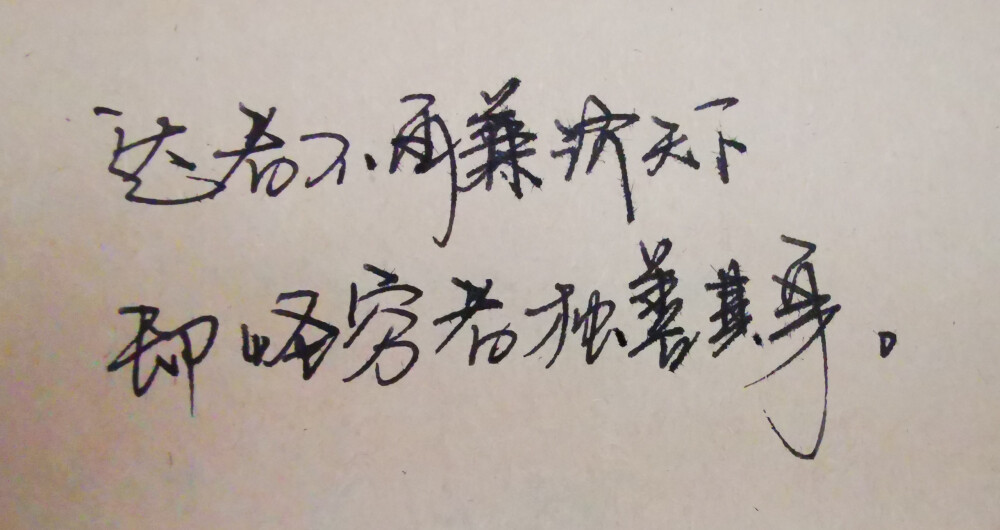 达者不再兼济天下
即穷者独善其身。